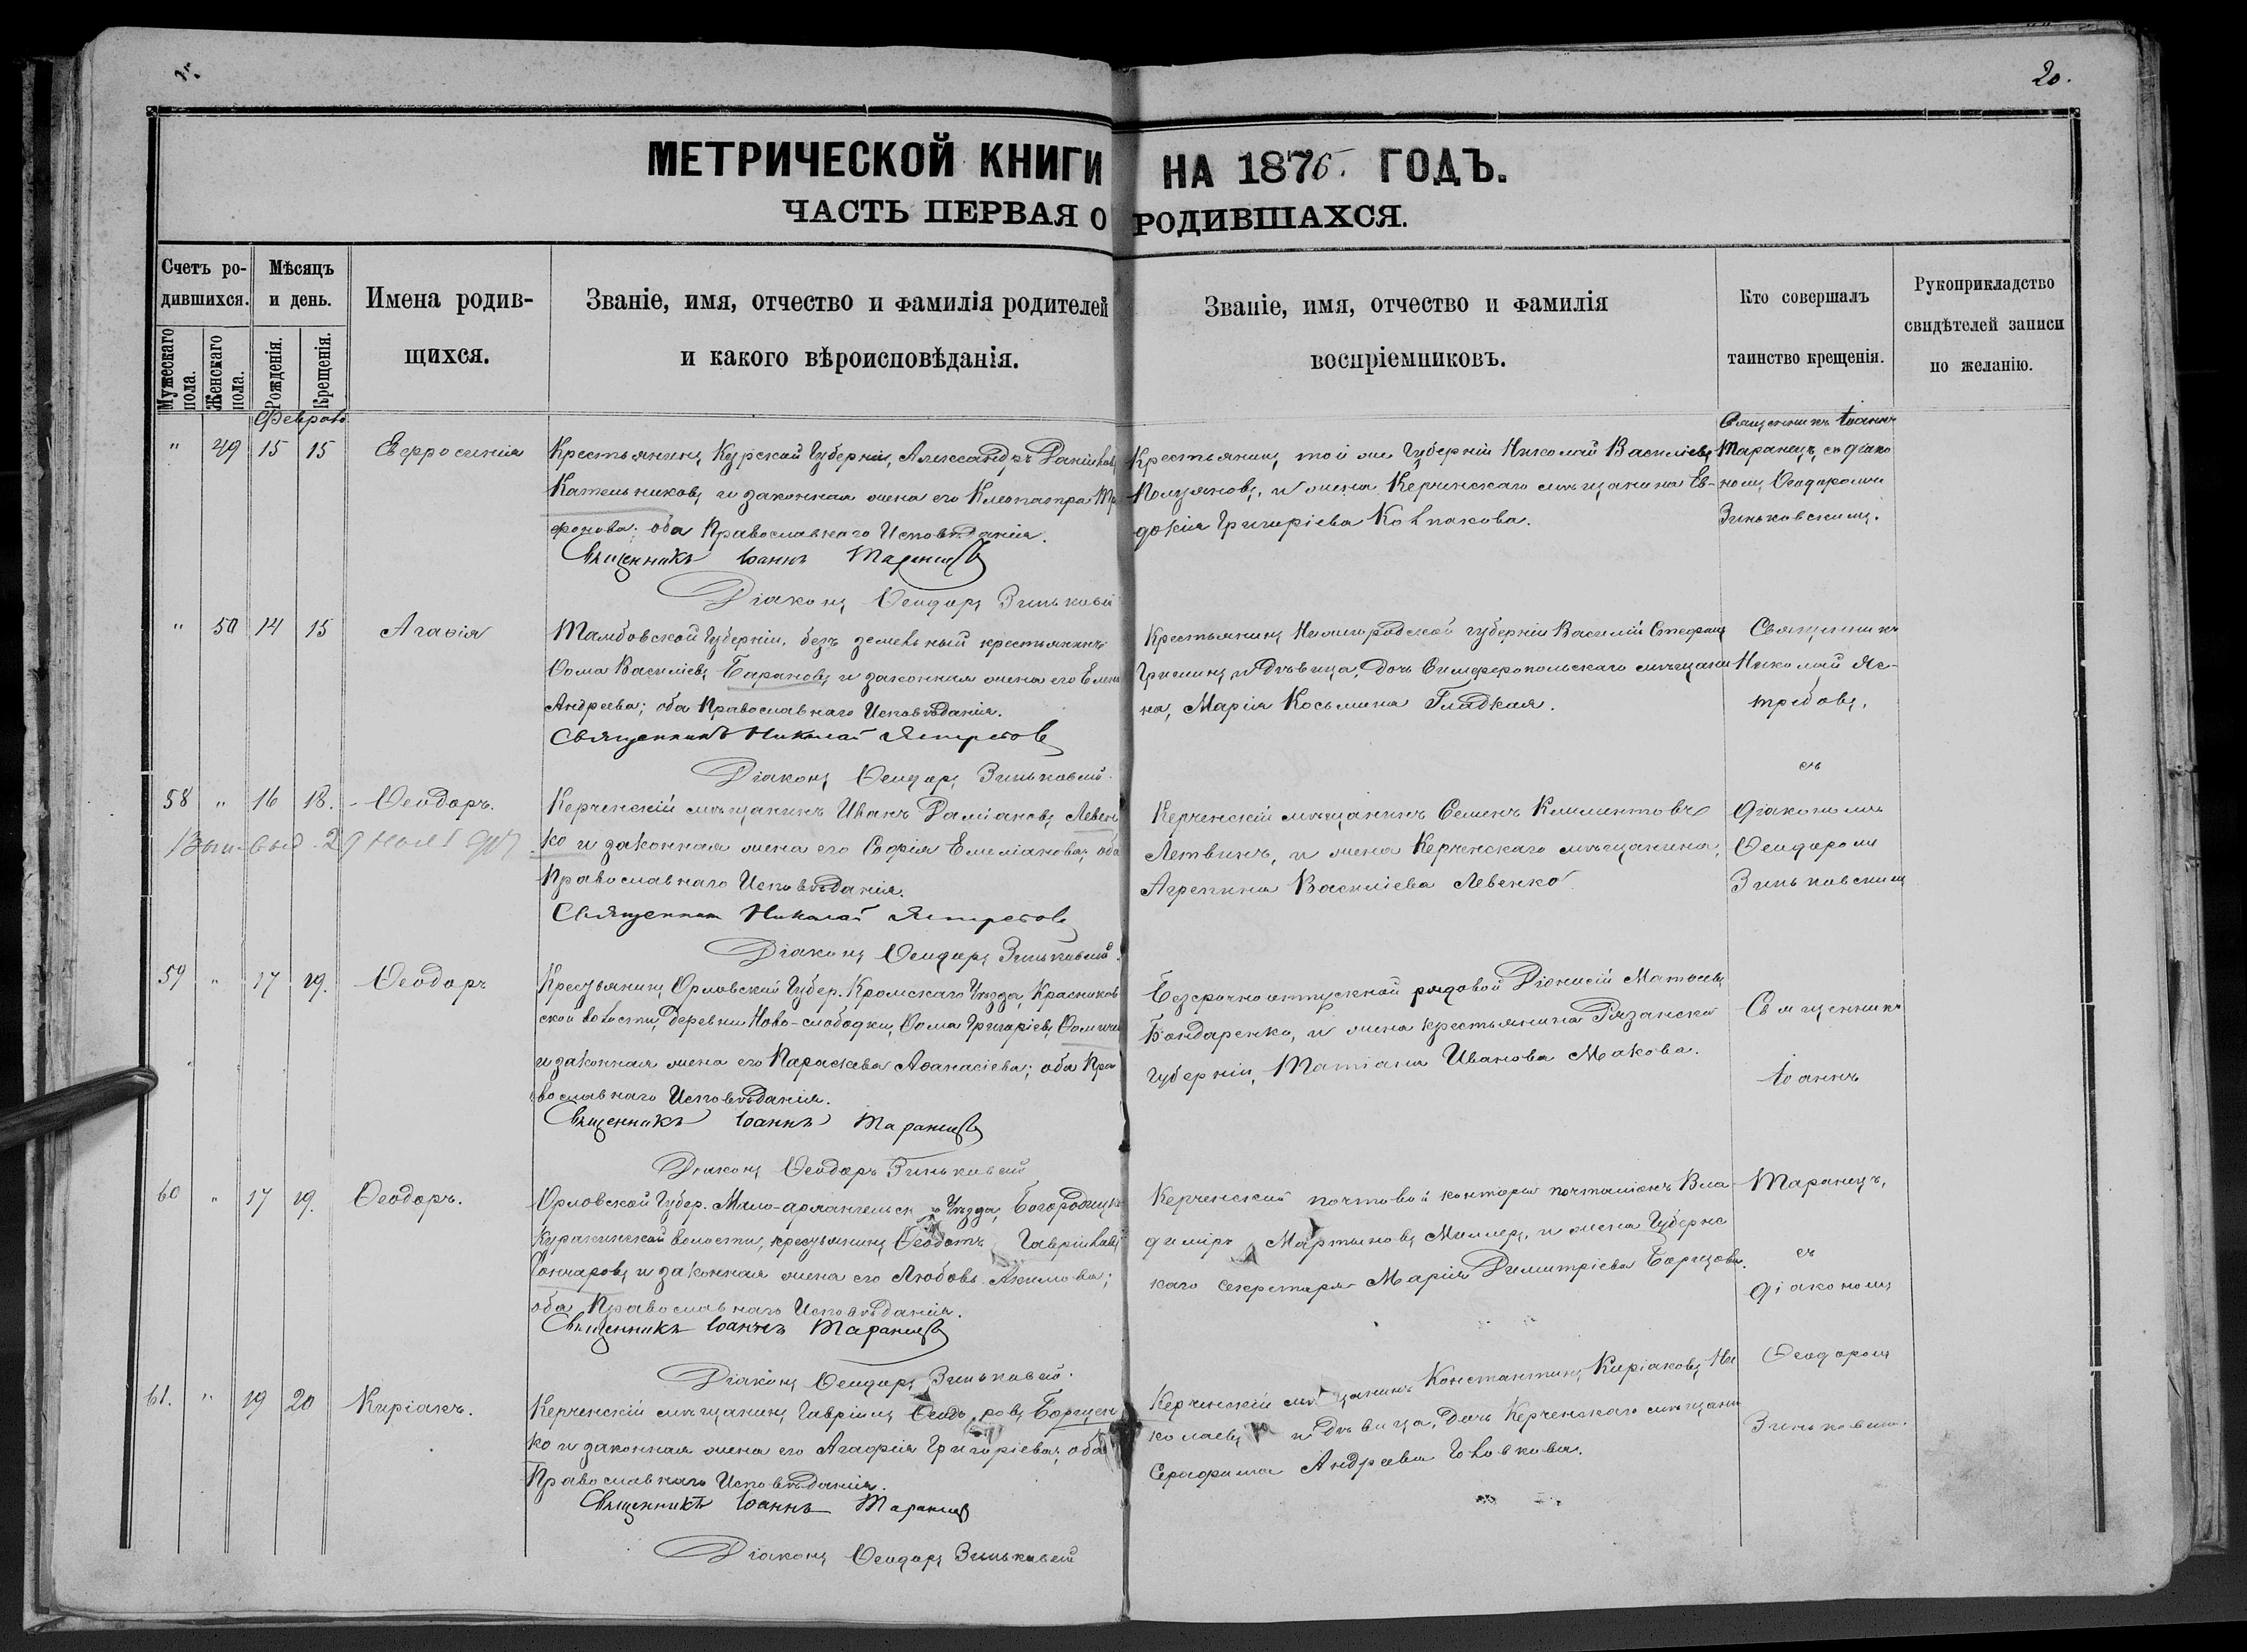 20.
МЕТРИЧЕСКОЙ КНИГИ НА 1876. ГОДЪ.
ЧАСТЬ ПЕРВАЯ О РОДИВШАХСЯ.
Счетъ ро-
дившихся.
Мужескаго пола.
Женскаго пола.
Мѣсяцъ
и день.
Рожденія.
Крещенія.
Имена родив-
щихся.
Званіе, имя, отчество и фамилія родителей
и какого вѣроисповѣданія.
Званіе, имя, отчество и фамилія
воспріемниковъ.
Кто совершалъ
таинство крещенія.
Рукоприкладство
свидѣтелей записи
по желанію.
" 49 15 15 Евфросинія
Крестьянинъ Курской Губерніи, Александръ Даніиловъ
Кательниковъ и законная жена его Клеопатра
фонова; оба Православнаго Исповѣданія.
Священникъ Іоаннъ Таранецъ
Діаконъ Ѳеодоръ Зиньковскій
Крестьянинъ той же Губерніи Николай Василіевъ
Полуяновъ, и жена Керченскаго мѣщанина Ев-
докія Григоріева Колпакова.
Священникъ Іоаннъ
Таранецъ, съ діако
номъ Ѳеодоромъ
Зиньковскимъ.
" 50 14 15 Агаѳія
Тамбовской Губерніи, безъ земельный крестьянинъ
Ѳома Василіевъ Барановъ и законная жена его Елена
Андреева; оба Православнаго Исповѣданія.
Священникъ Николай Ястребовъ
Діаконъ Ѳеодоръ Зиньковскій
Крестьянинъ Нижегородской губерніи Василій Стефановъ
Гришинъ и дѣвица, дочь Симферопольскаго мѣщани
на, Марія Косьмина Гладкая.
Священникъ
Николай Яс-
требовъ,
58 " 16 18. Ѳеодоръ.
Керченскій мѣщанинъ Иванъ Даміановъ Левен
ко и законная жена его Софія Емеліанова; оба
Православнаго Исповѣданія.
Священникъ Николай Ястребовъ
Діаконъ Ѳеодоръ Зиньковскій
Керченскій мѣщанинъ Семенъ Климентовъ
Летвинъ, и жена Керченскаго мѣщанина,
Агрепина Василіева Левенко
съ
діакономъ
Ѳеодоромъ
Зиньковскимъ
59 " 17 19. Ѳеодоръ
Крестьянинъ Орловской Губер. Кромскаго Уѣзда, Красников
ской волости, деревни Ново-слободки, Ѳома Григоріевъ
и законная жена его Параскева Аѳанасіева; оба Пра
вославнаго Исповѣданія.
Священникъ Іоаннъ Таранецъ
Діаконъ Ѳеодоръ Зиньковскій
Безсрочноотпускной рядовой Діонисій Матѳеевъ
Бондаренко, и жена крестьянина Рязанской
Губерніи, Татіана Иванова Макова.
Священникъ
Іоаннъ
60 " 17 19. Ѳеодоръ.
Орловской Губер. Мало-архангельск Уѣзда,
Куракинской волости, крестьянинъ Ѳеодотъ Гавріиловъ
Гончаровъ и законная жена его Любовь Акимова;
оба Православнаго Исповѣданія.
Священникъ Іоаннъ Таранецъ
Діаконъ Ѳеодоръ Зиньковскій.
Керченской почтовой конторы почталіонъ Вла
диміръ Мартыновъ Миллеръ, и жена Губернс
каго секретаря Марія Димитріева Борщова.
Таранецъ,
съ
діакономъ
61. " 19 20 Киріакъ.
Керченскій мѣщанинъ Гавріилъ Ѳеодоровъ Борщен
ко и законная жена его Агафія Григоріева; оба
Православнаго Исповѣданія.
Священникъ Іоаннъ Таранецъ
Діаконъ Ѳеодоръ Зиньковскій
Керченскій мѣщанинъ Константинъ Киріаковъ Ни
колаевъ и дѣвица, дочь Керченскаго мѣщанина
Серафима Андреева Головкова.
Ѳеодоромъ
Зиньковским.